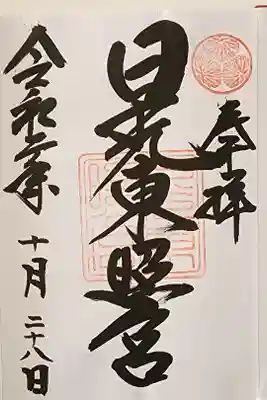 奉拝
日光東照宮
令和六年 十月 二十八日